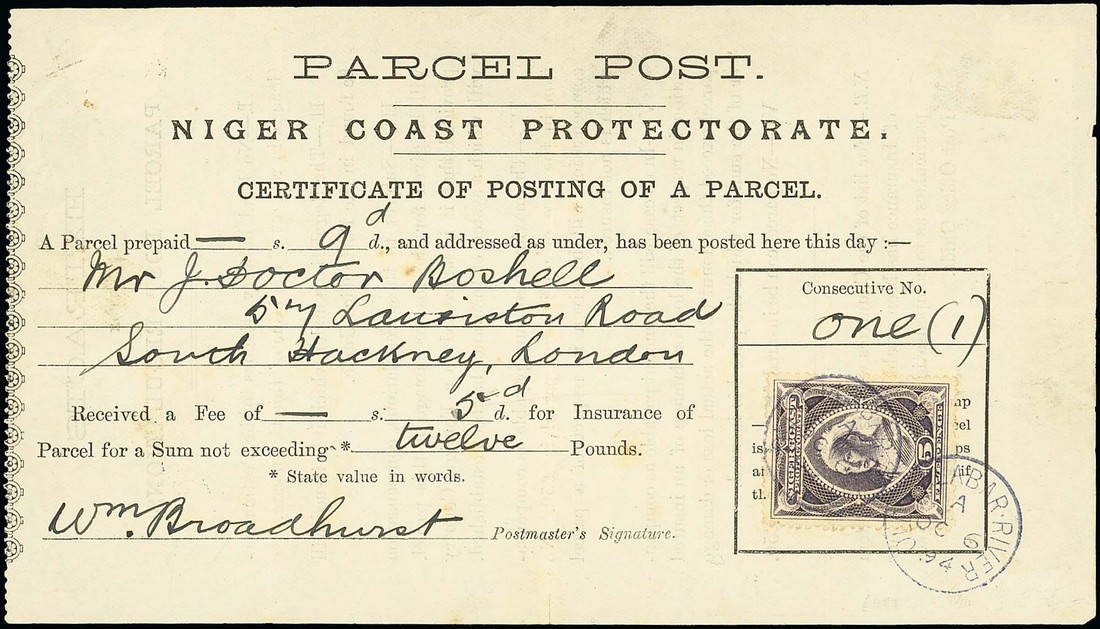 PARCEL POST.
NIGER COAST PROTECTORATE.
CERTIFICATE OF POSTING OF A PARCEL.
A Parcel prepaid — s. 9d d., and addressed as under, has been posted here this day :—
Mr J. Doctor Boshell
57 Lauriston Road
South Hackney, London
Received a Fee of — s. 5d d. for Insurance of
Parcel for a Sum not exceeding * twelve Pounds.
* State value in words.
Wm. Broadhurst Postmaster's Signature.
Consecutive No.
One (1)
NIGER COAST
PROTECTORATE
5
OLD CALABAR RIVER
A
OC 6
94